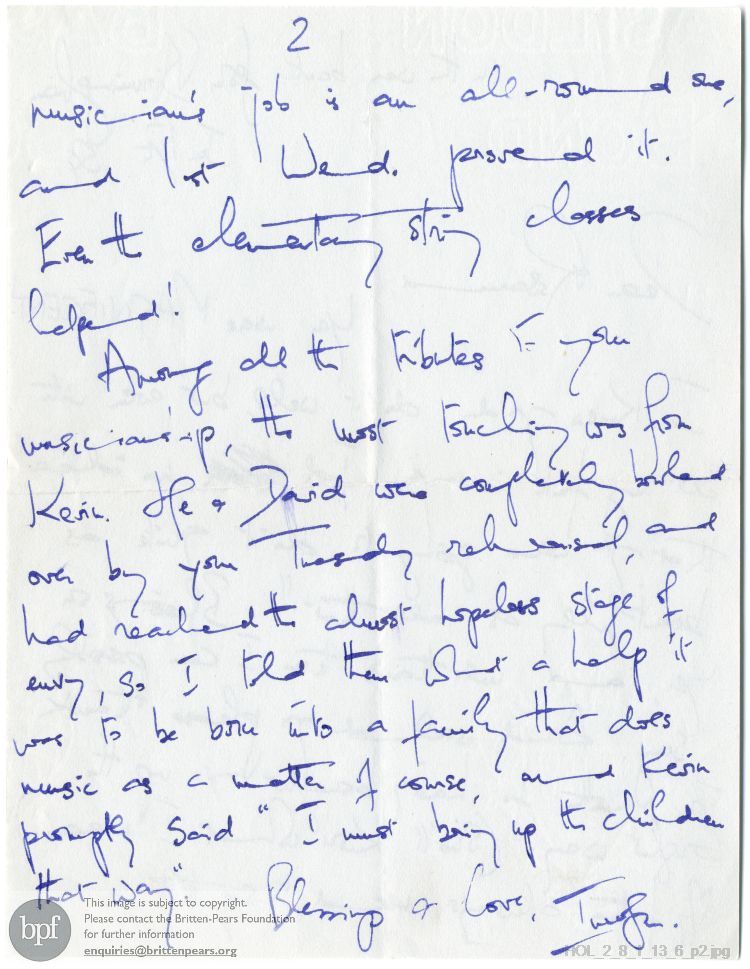 2
musician's job is an all-round one,
and last Wend. proved it.
Even the elementary string classes
helped!
Among all the tributes to your
musicianship, the most touching was from
Kevin. He & David were completely bowled
over by your Tuesday rehearsal, and
had reached the almost hopeless stage of
envy, so I told them what a help it
was to be born into a family that does
music as a matter of course, and Kevin
promptly said "I must bring up the children
that way."
Blessings & Love,
This image is subject to copyright.
Please contact the Britten-Pears Foundation
for further information
enquiries@brittenpears.org
bpf
HOL_2_8_1_13_6_p2.jpg